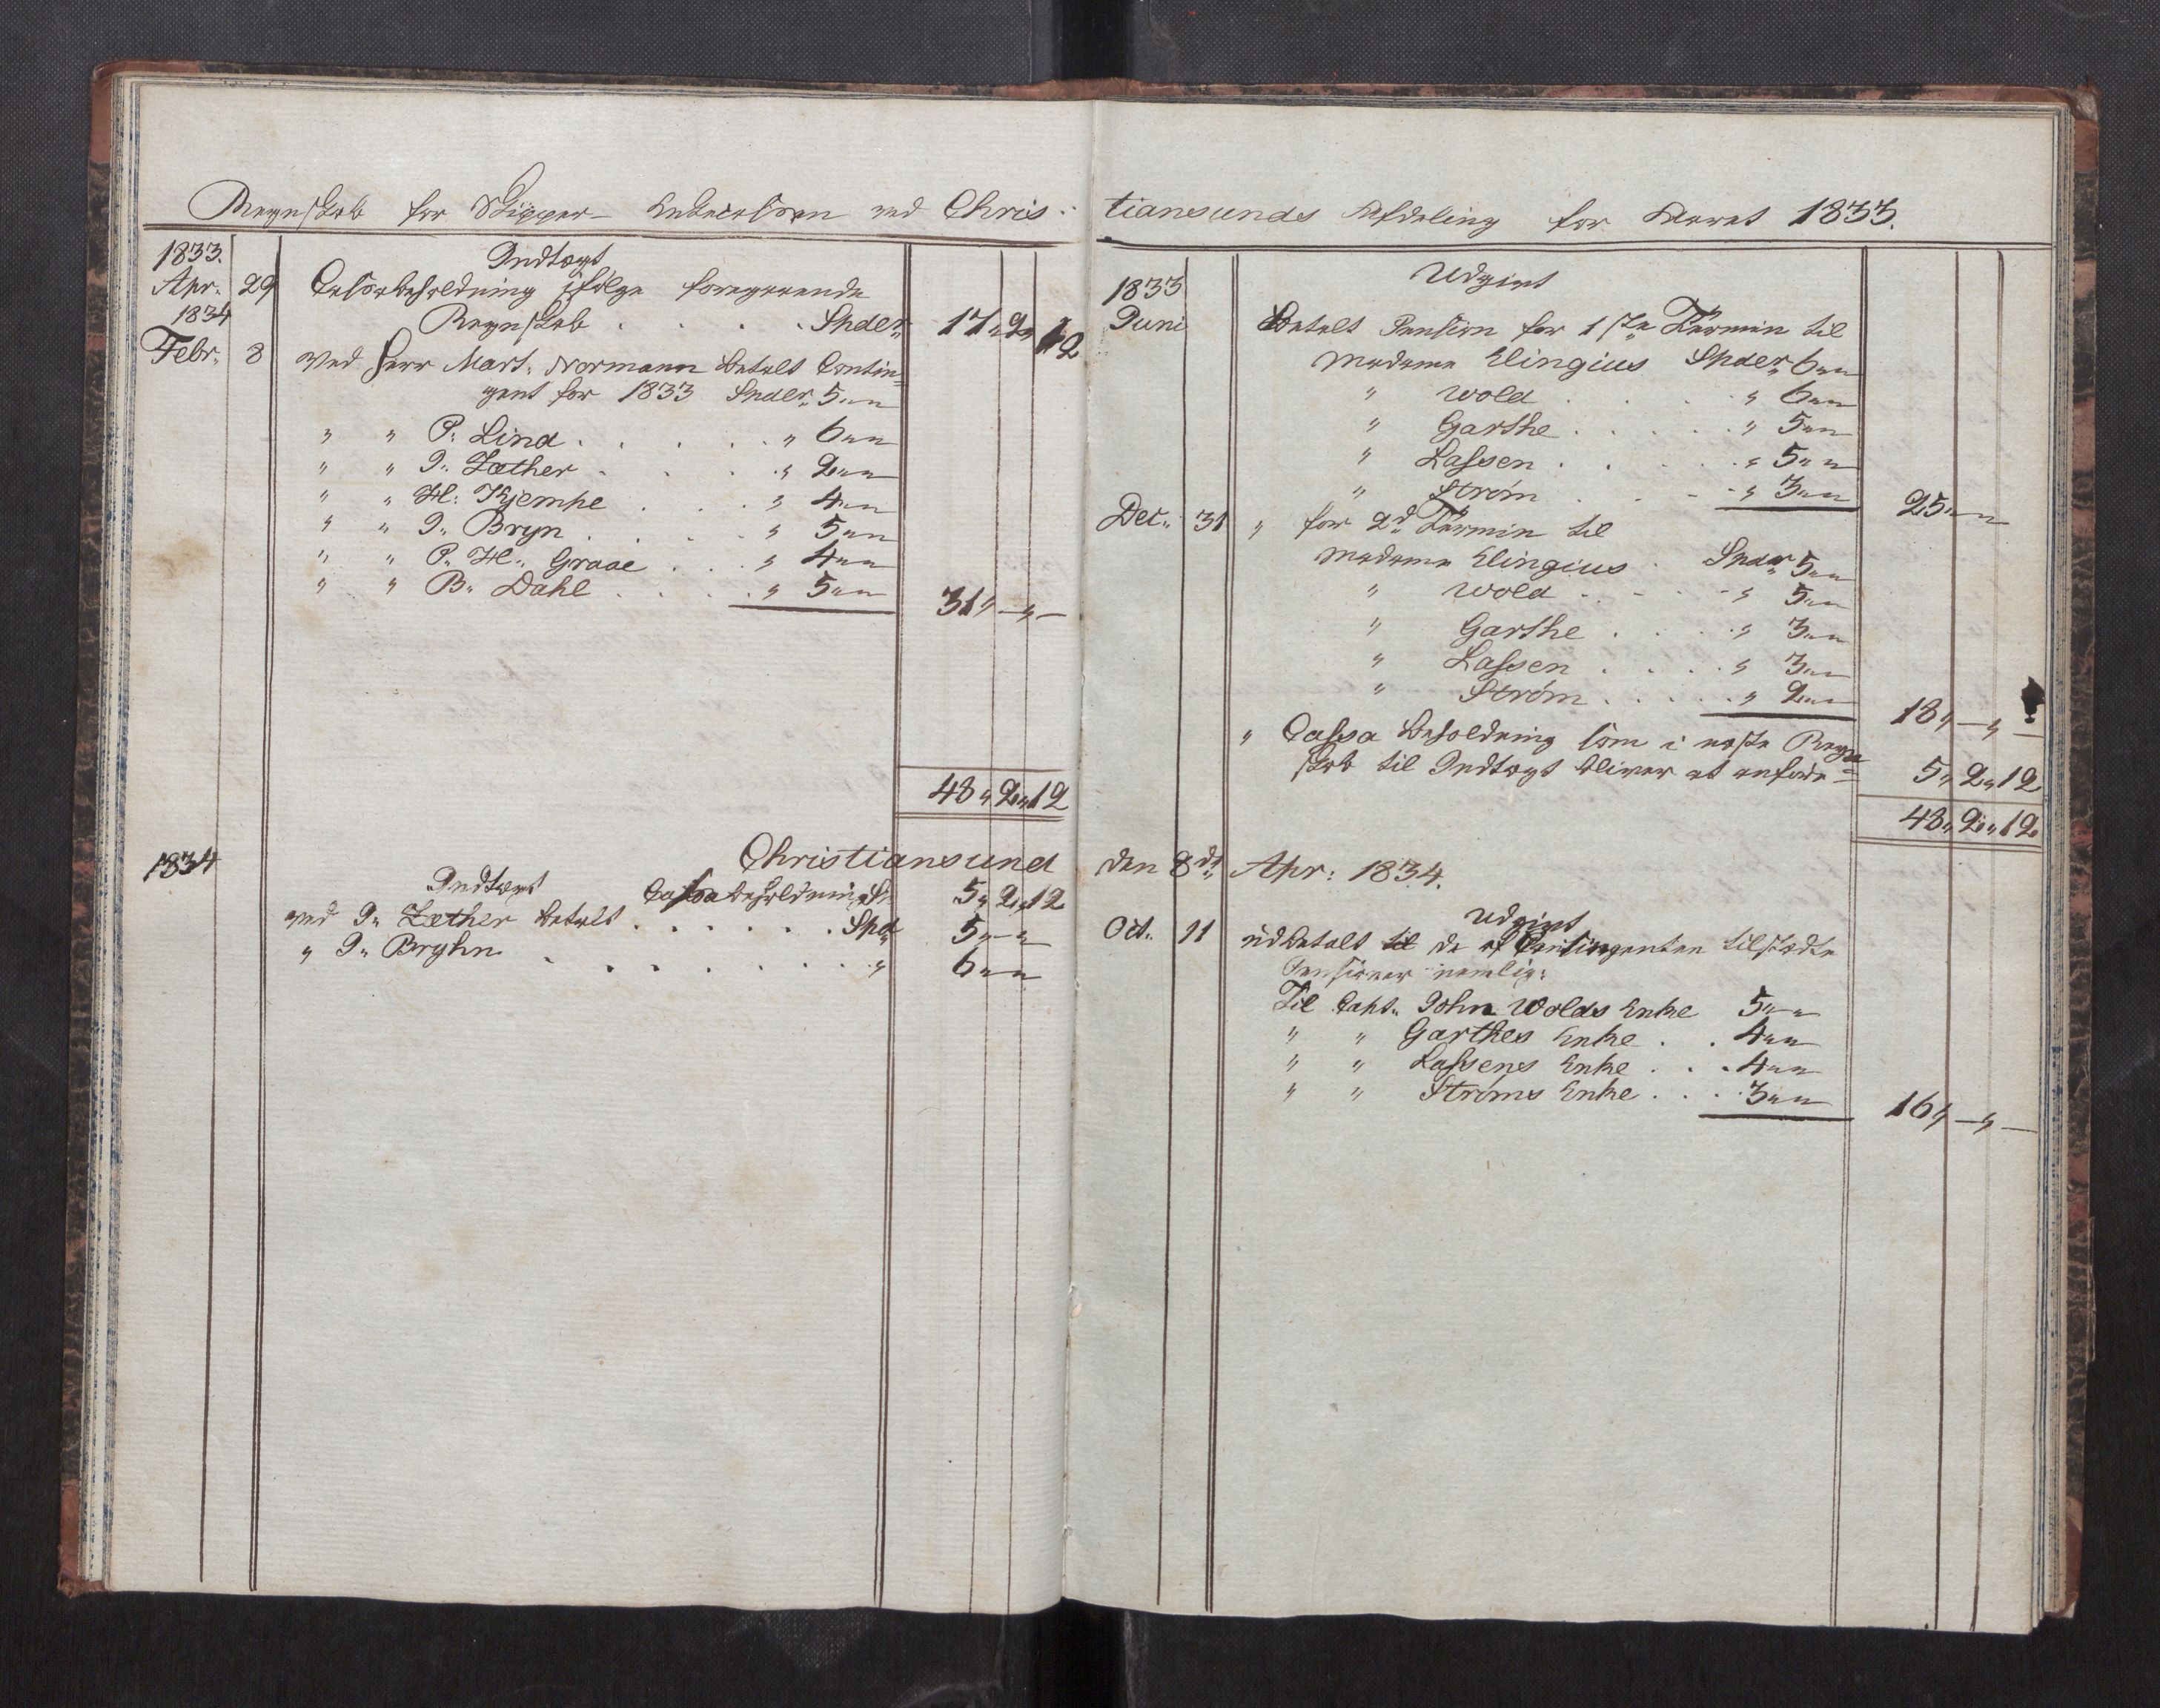 Regnskab for Skipper- Enkecassen ved Chris-
1833.
Indtægt
Apr. 29 Cassabeholdning ifølge foregaaende
1834
Regnskab . . . . Spdlr. 17 " 2 " 12
Febr. 8 ved Herr Mart. Normann betalt Contin=
gent for 1833 Spdlr. 5 " "
" " P. Lind . . . . . " 6 " "
" " I. Zæther . . . . " 2 " "
" " H. Kjempe . . . " 4 " "
" " I. Bryn . . . . " 5 " "
" " P. H. Graae . . . " 4 " "
" " B. Dahl . . . . " 5 " " 31 " - " -
48 " 2 " 12
Christiansund
1834
Indtægt Cassabeholdning 5 " 2 " 12
ved I. Zæther betalt . . . . . . Spd 5 " - "
" I. Bryhn . . . . . . . " 6 " "
tiansunds Afdeling for Aaret 1833.
1833
Udgivt
Juni Betalt Pension for 1ste Termin til
Madame Elingius Spdlr. 6 " "
" Wold . . . " 6 " "
" Garthe . . . . . " 5 " "
" Lassen . . . . . " 5 " "
" Strøm . . - " 3 " " 25 " "
Dec. 31 " for 2d. Termin til
Madame Elingius . Spdlr 5 " "
" Wold . . . - " 5 " "
" Garthe . . . . " 3 " "
" Lassen . . . . " 3 " "
" Strøm . . . . . " 2 " " 18 " - " -
" Cassa Beholdning som i næste Regn=
skab til Indtægt bliver at anføre = 5 " 2 " 12
48 " 2 " 12
den 8de Apr: 1834.
Udgivt
Oct. 11 udbetalt til de af Contingenten tilstædte
Pensioner nemlig:
Til Capt. John Wolds Enke 5 " "
" " Garthes Enke . . 4 " "
" " Lassens Enke . . . 4 " "
" " Strøms Enke . . . . 3 " " 16 " - " -